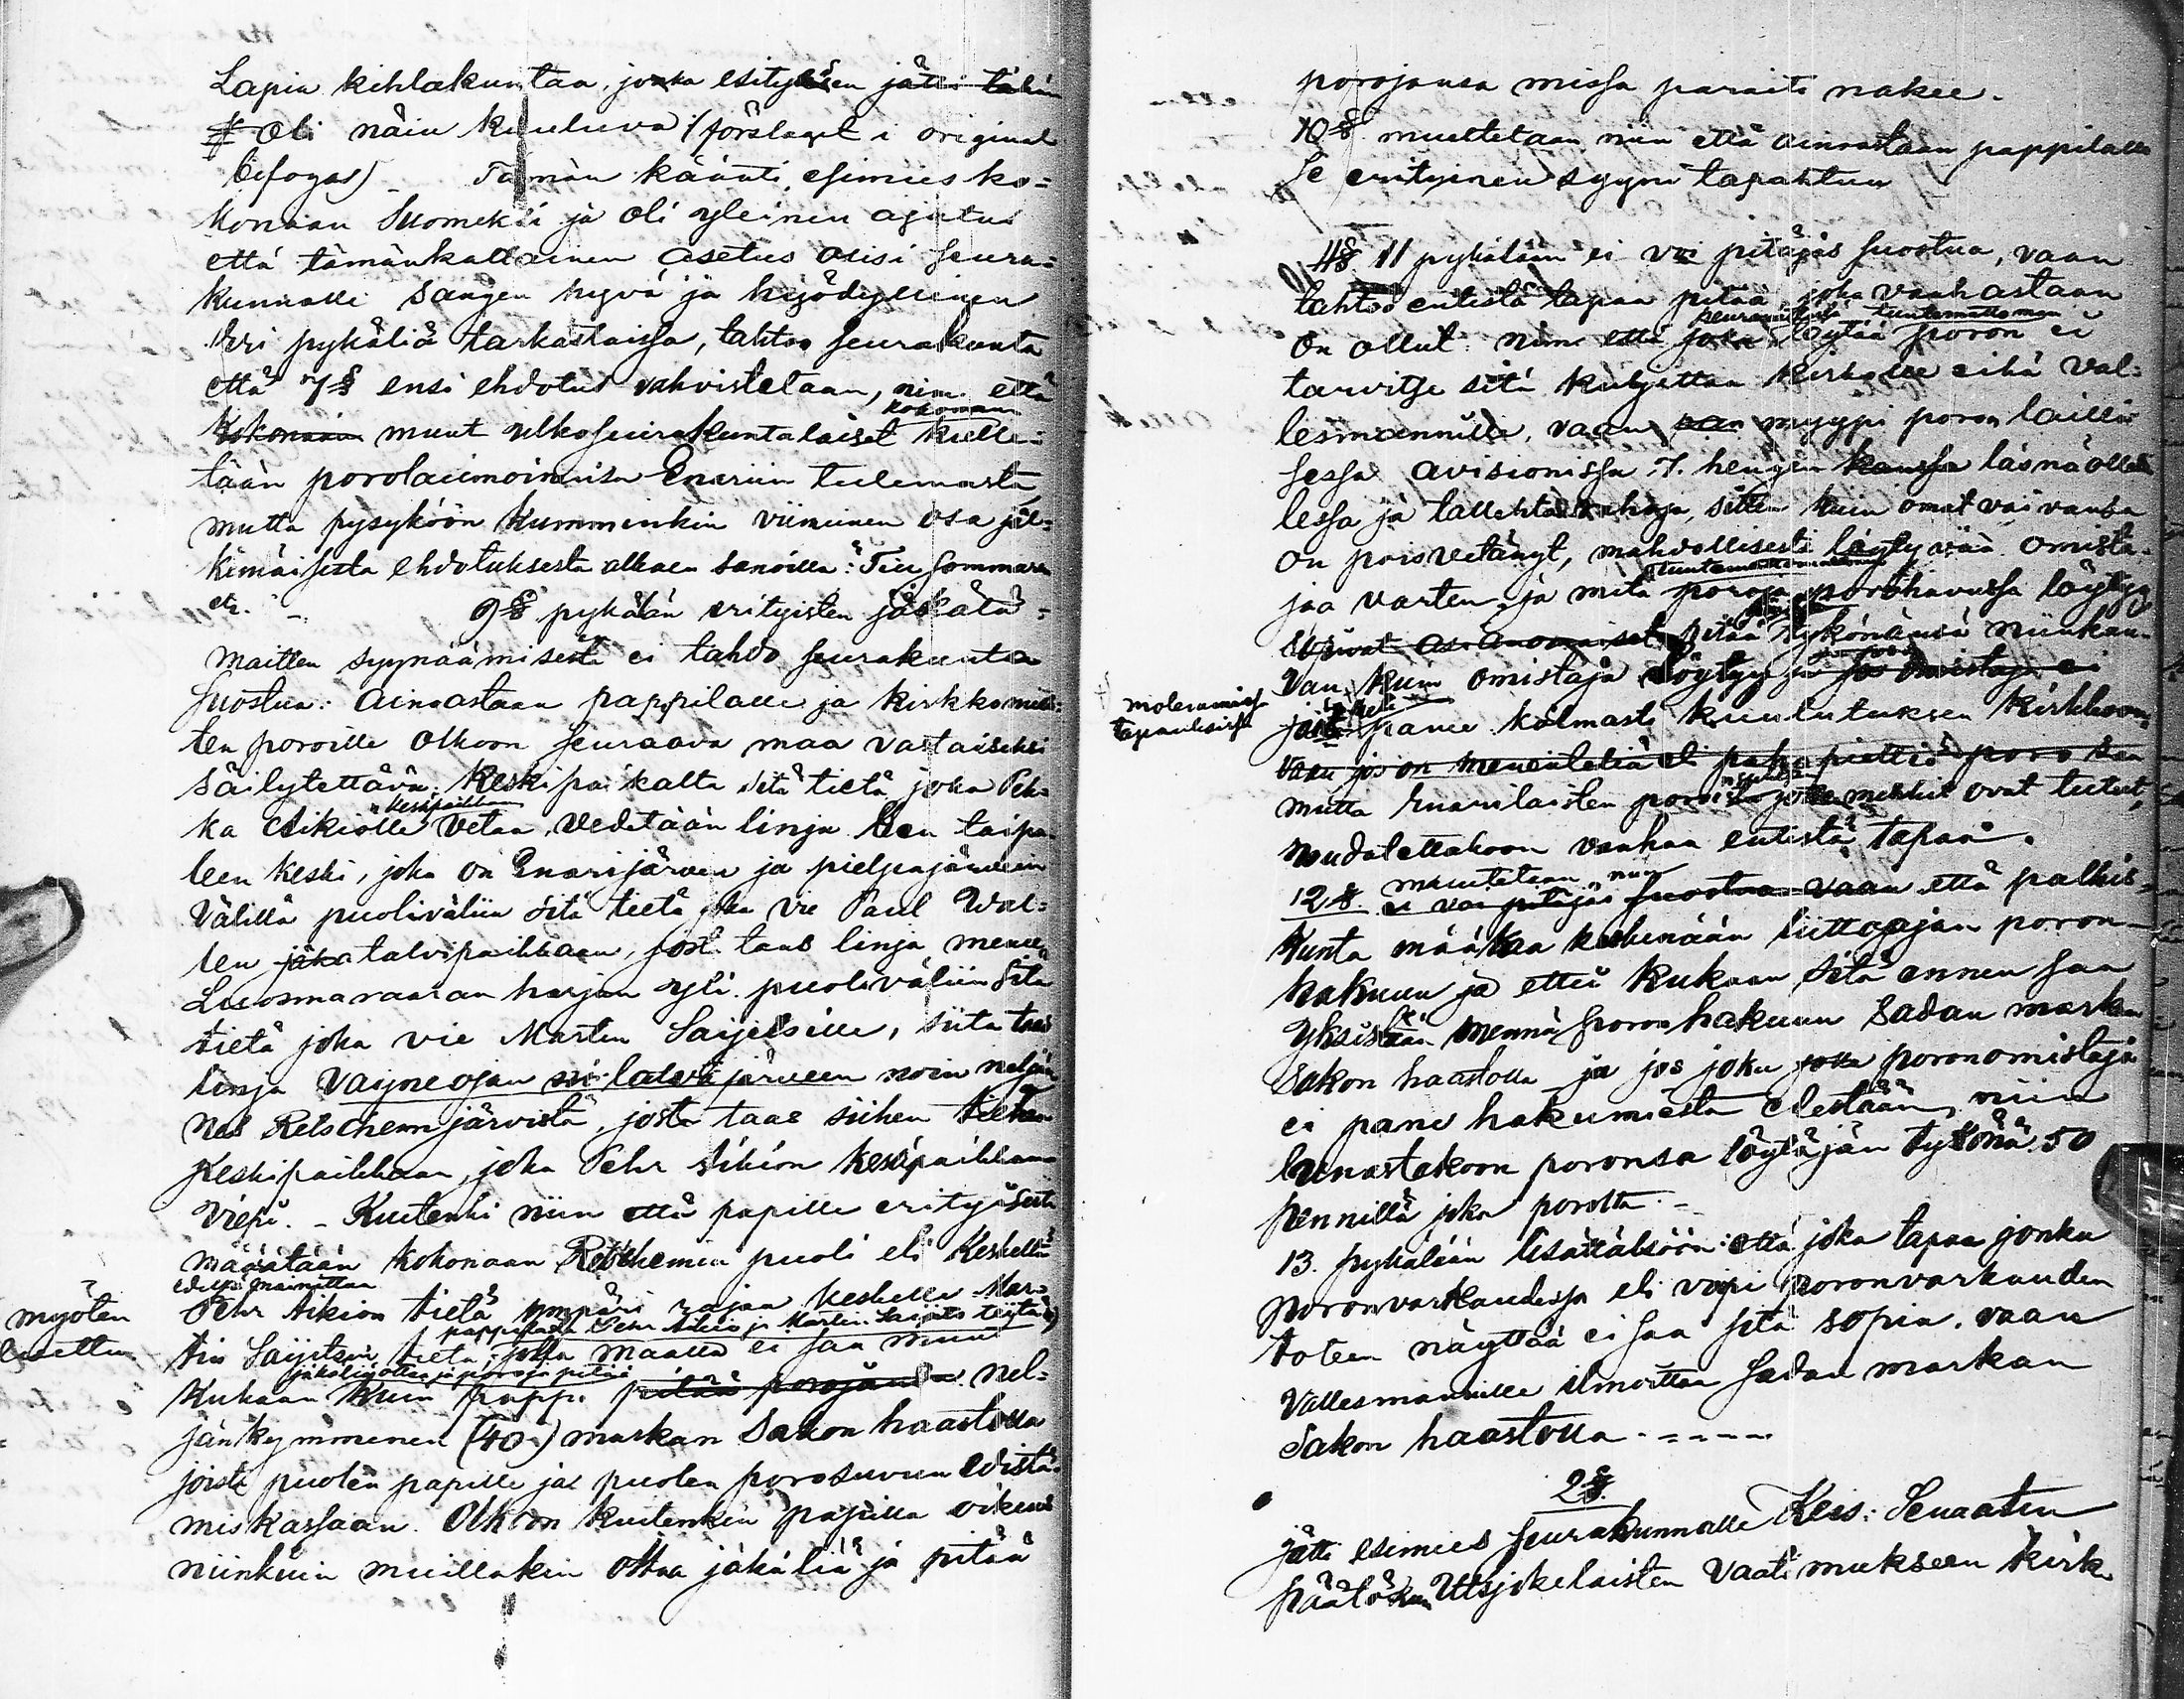 Lapin kihlakuntaa, jonka esityksen jätti tähän
Oli näin kuuluva (förslaget i original
bifogas) Tämän käänti esimies ko=
konaan Suomeksi ja oli yleinen ajatus
että tämänkaltainen asetus olisi seura=
kunnalle sangen hyvä ja hyödyllinen
Eri pykäliä tarkastaissa, tahtoo seurakunta
että 7 § ensi ehdotus vahvistetaan, nim. että
kokonaan
kokonaan muut ulkoseurakuntalaiset kielle=
tään porolaiimoinensa Enariin tulemasta
mutta pysyköön kumminkin viiminen osa jäl=
kimäisestä ehdotuksesta alkaen sanoilla: Till sommaren
etc. 9 § pykälän erityisten jäkälä=
maitten syynäämisestä ei tahdo seurakunta
suostua: Ainoastaan pappilalle ja kirkkomies=
ten poroille olkoon seuraava maa vastaiseksi
säilytettävä: Keskipaikalta sitä tietä joka Peh=
keskipaikkaan
ka Aikiolle vetää, vedetään linja sen taipa=
leen keski, joka on Enarijärven ja pielpajärven
välillä puoliväliin sitä tietä joka vie Paul Wal=
len joka talvipaikkaan, jost. taas linja menee
Luosmavaaran harjan yli puoliväliin sitä
tietä joka vie Marten Saijetsille, siitä taas
linja Vaijneojan latvajärveen noin neljän
nes Retschemjärvistä, josta taas siihen tiehen
Keskipaikkaan, joka Pehr Aikion keskipaikkaan
Viepi. - Kuitenki niin että papille erityisesti
määrätään kokonaan Retschemin puoli eli keskellä
edellä mainittua
myöten
Pehr Aikion tietä ympäri rajan keskelle Mar=
pappilasta Pehr Aikio ja Marten Saijets teitä
luettu
tin Saijetsin tietä, jolla maalla ei saa muu
jäkäliä ottaa ja poroja pitää
kukaan kuin pappi pitää porojansa nel=
jänkymmenen (40) markan Sakon haastolla
joista puolen papille ja puolen porosuvun edistä=
miskassaan. Olkoon kuitenkin papilla oikeus
niinkuin muillakin ottaa jäkäliä ja pitää
porojansa missä paraite näkee.
10 § muutetaan niin että ainoastaan pappilalle
se erityinen syyni tapahtuu
11 pykälään ei voi pitäjäs suostua, vaan
tahtoo entistä tapaa pitää, joka vanhastaan
tuntemattoman
on ollut: nim. että joka löytää poron ei
tarvitse sitä kuljettaa kirkolle eikä val=
lesmannille, vaan myypi poron lailli=
sessa avisionissa 7. hengen kanssa läsnäolle
lessa ja tallehtii rahoja, sitten kuin omat vaivansa
on poisvetänyt, mahdollisesti löytyvää omista=
tuntemattomia
jaa varten, ja mitä poroja porohavussa löytyy
pitää tykönänsä niinkau=
van kuin omistaja löytyy ja jos omistaja ei
molemmissa
tapauksissa
pane kolmasti kuulutuksen kirkkoon,
vaan jos on
mutta Enarilaisten merkit ovat tutut,
noudatettakoon vanhaa entistä tapaa.
muutetaan niin
12 §. ei voi pitäjäs suostua vaan että palkis=
kunta määrää keskenään liittoajan poron=
hakuun ja ettei kukaan sitä ennen saa
yksistään mennä poronhakuun Sadan markan
Sakon haastolla ja jos joku joka poronomistaja
ei pane hakumiestä edestään, niin
lunastakoon poronsa löytäjän tykönä 50
pennillä joka porolta. -
13. pykälään lisättäköön: että joka tapaa jonku
poronvarkaudessa eli voipi poronvarkauden
toteen näyttää ei saa sitä sopia, vaan
Vallesmannille ilmoittaa Sadan markan
Sakon haastolla. - - - -
2 §.
jätti esimies seurakunnalle Keis: Senaatin
päätöksen Utsjokelaisten vaatimukseen kirk